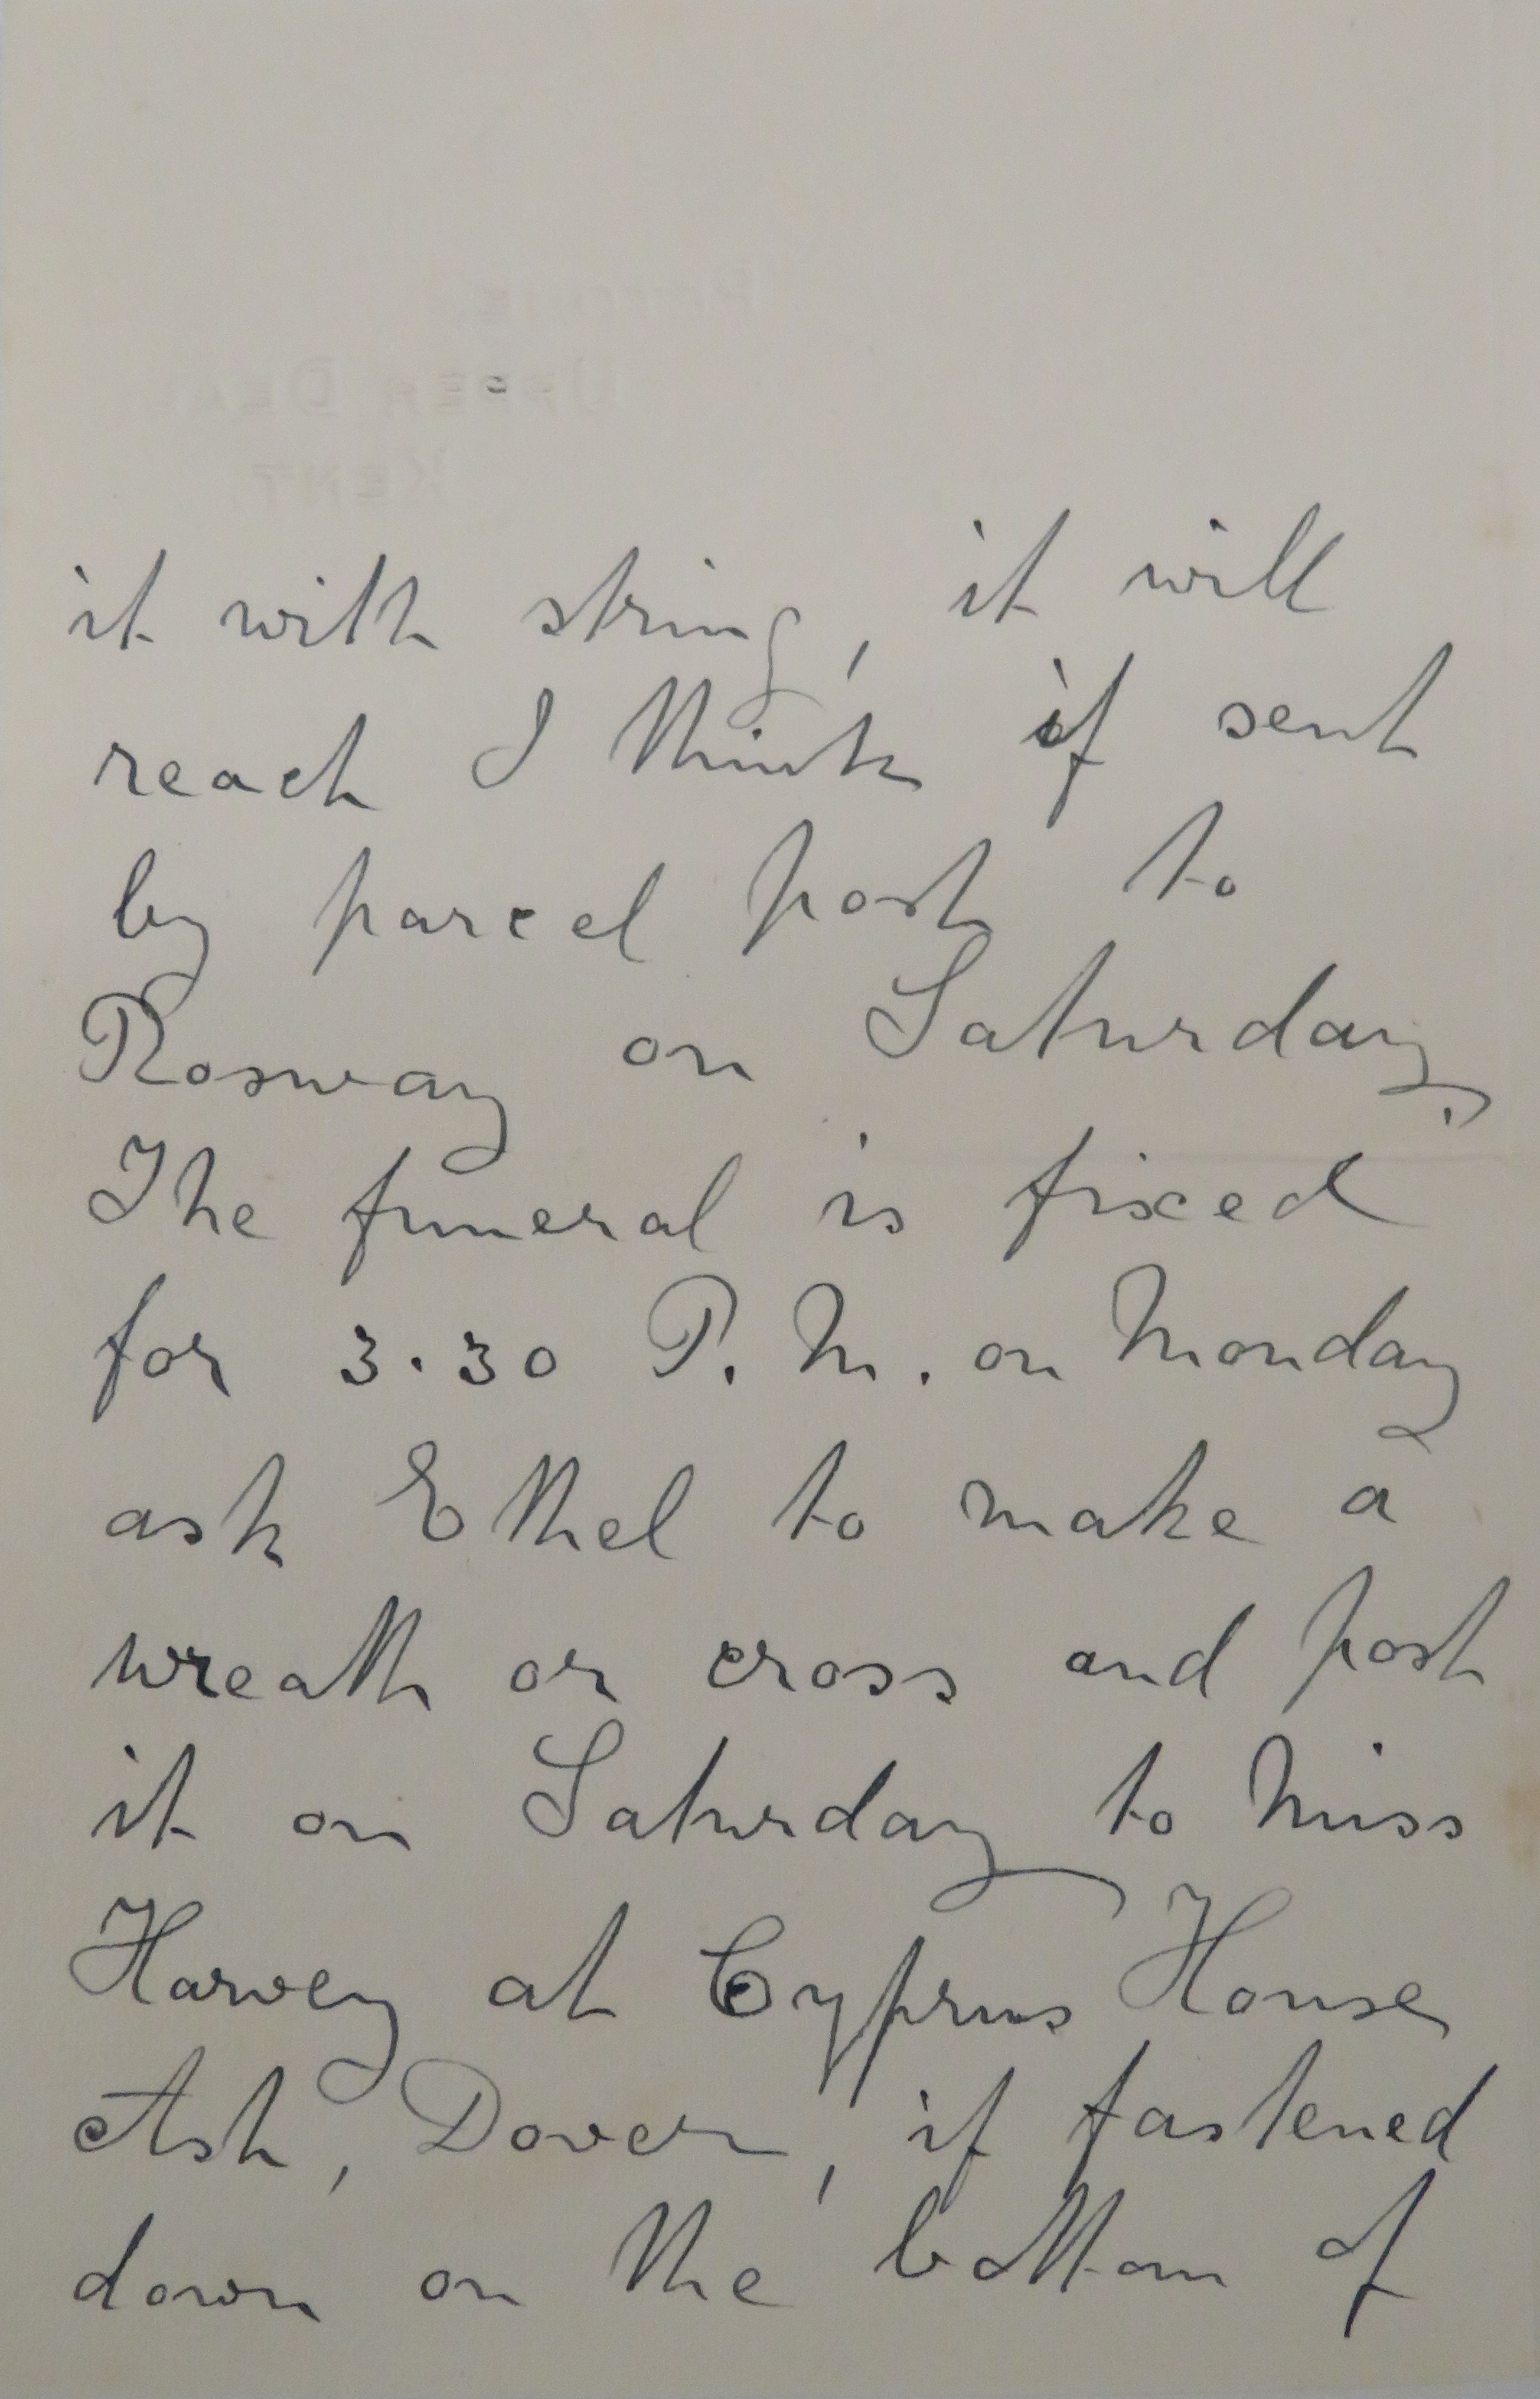 it with string, it will
reach I think if sent
by parcel post to
Rosway on Saturday.
The funeral is fixed
for 3.30 P.M. on Monday
ask Ethel to make a
wreath or cross and post
it on Saturday to Miss
Harvey at Cyprus House
Ash, Dover, if fastened
down on the bottom of